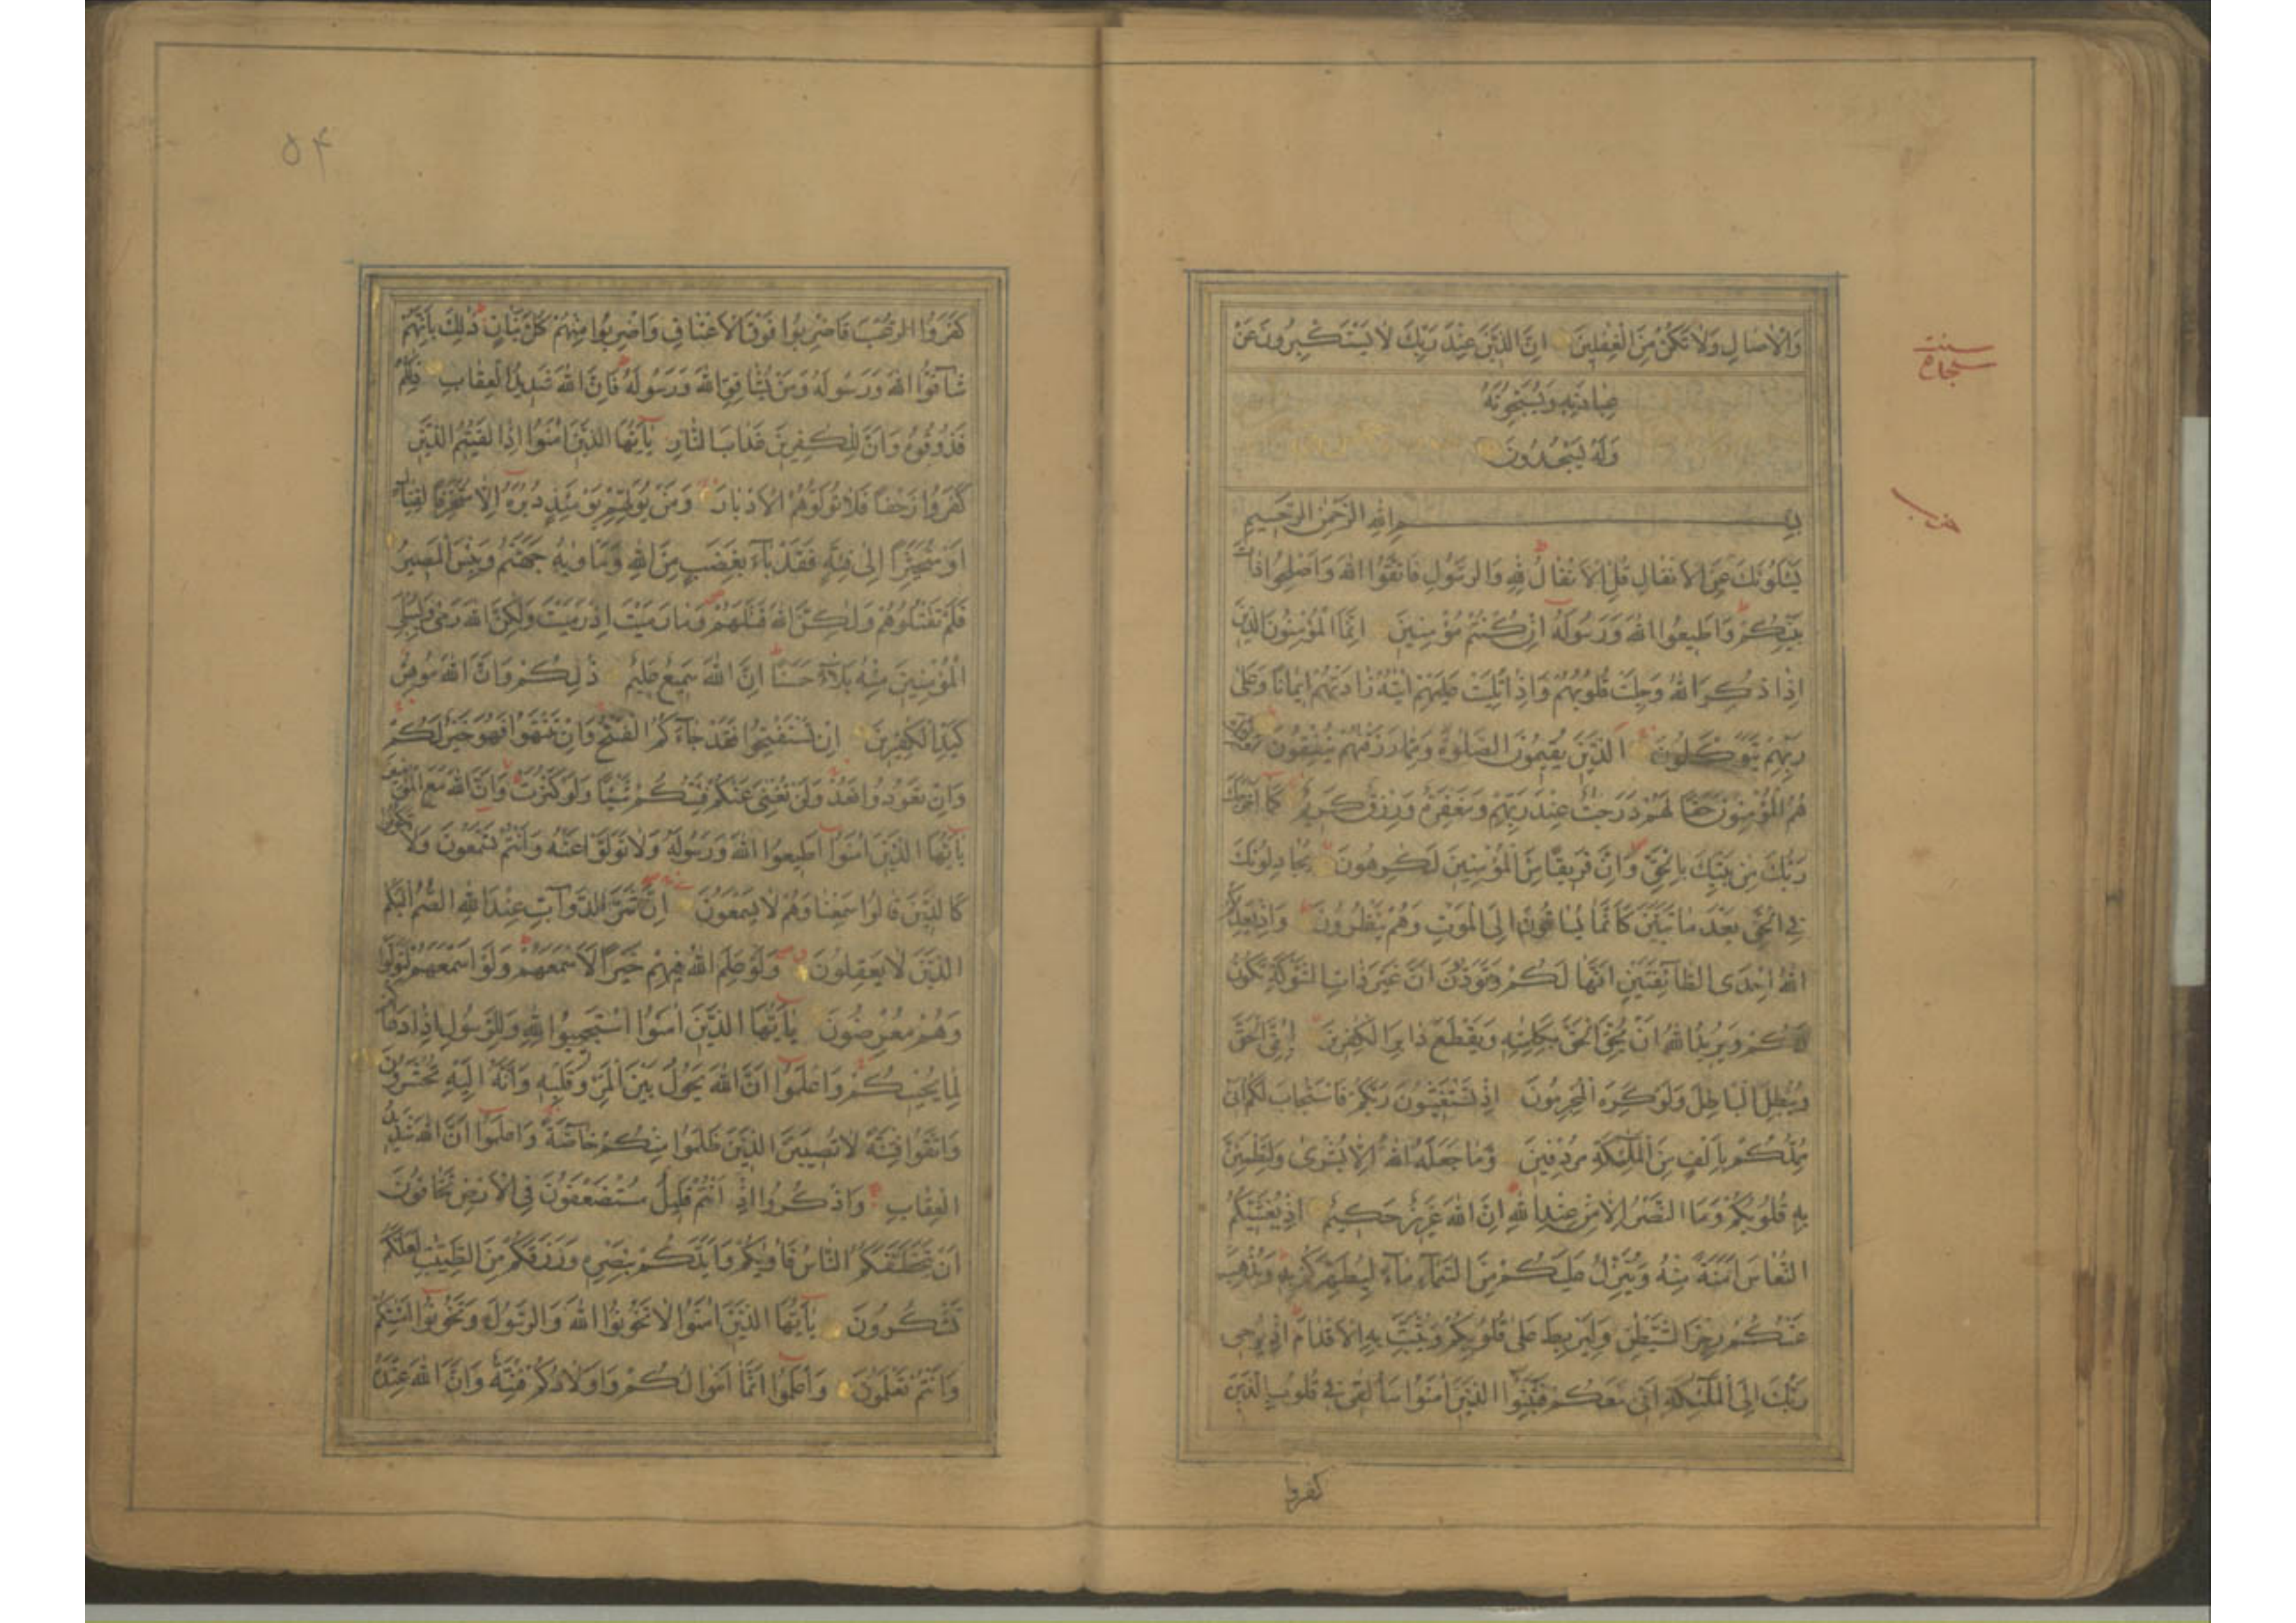 وَالْاٰصَالِ وَلَا تَكُنْ مِنَ الْغٰفِلِينَ اِنَّ الَّذِينَ عِنْدَ رَبِّكَ لَا يَسْتَكْبِرُونَ عَنْ
عِبَادَتِهِ وَيُسَبِّحُونَهُ
وَلَهُ يَسْجُدُونَ
بِسْمِ اللهِ الرَّحْمٰنِ الرَّحِيمِ
يَسْئَلُونَكَ عَنِ الْاَنْفَالِ قُلِ الْاَنْفَالُ لِلّٰهِ وَالرَّسُولِ فَاتَّقُوا اللهَ وَاَصْلِحُوا ذَاتَ
بَيْنِكُمْ وَاَطِيعُوا اللهَ وَرَسُولَهُ اِنْ كُنْتُمْ مُؤْمِنِينَ اِنَّمَا الْمُؤْمِنُونَ الَّذِينَ
اِذَا ذُكِرَ اللهُ وَجِلَتْ قُلُوبُهُمْ وَاِذَا تُلِيَتْ عَلَيْهِمْ اٰيٰتُهُ زَادَتْهُمْ اِيمَانًا وَعَلٰى
رَبِّهِمْ يَتَوَكَّلُونَ الَّذِينَ يُقِيمُونَ الصَّلٰوةَ وَمِمَّا رَزَقْنٰهُمْ يُنْفِقُونَ اُولٰئِكَ
هُمُ الْمُؤْمِنُونَ حَقًّا لَهُمْ دَرَجٰتٌ عِنْدَ رَبِّهِمْ وَمَغْفِرَةٌ وَرِزْقٌ كَرِيمٌ كَمَا اَخْرَجَكَ
رَبُّكَ مِنْ بَيْتِكَ بِالْحَقِّ وَاِنَّ فَرِيقًا مِنَ الْمُؤْمِنِينَ لَكٰرِهُونَ يُجَادِلُونَكَ
فِي الْحَقِّ بَعْدَ مَا تَبَيَّنَ كَاَنَّمَا يُسَاقُونَ اِلَى الْمَوْتِ وَهُمْ يَنْظُرُونَ وَاِذْ يَعِدُكُمُ
اللهُ اِحْدَى الطَّائِفَتَيْنِ اَنَّهَا لَكُمْ وَتَوَدُّونَ اَنَّ غَيْرَ ذَاتِ الشَّوْكَةِ تَكُونُ
لَكُمْ وَيُرِيدُ اللهُ اَنْ يُحِقَّ الْحَقَّ بِكَلِمٰتِهِ وَيَقْطَعَ دَابِرَ الْكٰفِرِينَ لِيُحِقَّ الْحَقَّ
وَيُبْطِلَ الْبَاطِلَ وَلَوْ كَرِهَ الْمُجْرِمُونَ اِذْ تَسْتَغِيثُونَ رَبَّكُمْ فَاسْتَجَابَ لَكُمْ اَنِّي
مُمِدُّكُمْ بِاَلْفٍ مِنَ الْمَلٰئِكَةِ مُرْدِفِينَ وَمَا جَعَلَهُ اللهُ اِلَّا بُشْرٰى وَلِتَطْمَئِنَّ
بِهِ قُلُوبُكُمْ وَمَا النَّصْرُ اِلَّا مِنْ عِنْدِ اللهِ اِنَّ اللهَ عَزِيزٌ حَكِيمٌ اِذْ يُغَشِّيكُمُ
النُّعَاسَ اَمَنَةً مِنْهُ وَيُنَزِّلُ عَلَيْكُمْ مِنَ السَّمَاءِ مَاءً لِيُطَهِّرَكُمْ بِهِ وَيُذْهِبَ
عَنْكُمْ رِجْزَ الشَّيْطٰنِ وَلِيَرْبِطَ عَلٰى قُلُوبِكُمْ وَيُثَبِّتَ بِهِ الْاَقْدَامَ اِذْ يُوحِي
رَبُّكَ اِلَى الْمَلٰئِكَةِ اَنِّي مَعَكُمْ فَثَبِّتُوا الَّذِينَ اٰمَنُوا سَاُلْقِي فِي قُلُوبِ الَّذِينَ
كفروا
سنت
سجده
۵۴
كَفَرُوا الرُّعْبَ فَاضْرِبُوا فَوْقَ الْاَعْنَاقِ وَاضْرِبُوا مِنْهُمْ كُلَّ بَنَانٍ ذٰلِكَ بِاَنَّهُمْ
شَاقُّوا اللهَ وَرَسُولَهُ وَمَنْ يُشَاقِقِ اللهَ وَرَسُولَهُ فَاِنَّ اللهَ شَدِيدُ الْعِقَابِ ذٰلِكُمْ
فَذُوقُوهُ وَاَنَّ لِلْكٰفِرِينَ عَذَابَ النَّارِ يٰاَيُّهَا الَّذِينَ اٰمَنُوا اِذَا لَقِيتُمُ الَّذِينَ
كَفَرُوا زَحْفًا فَلَا تُوَلُّوهُمُ الْاَدْبَارَ وَمَنْ يُوَلِّهِمْ يَوْمَئِذٍ دُبُرَهُ اِلَّا مُتَحَرِّفًا لِقِتَالٍ
اَوْ مُتَحَيِّزًا اِلٰى فِئَةٍ فَقَدْ بَاءَ بِغَضَبٍ مِنَ اللهِ وَمَأْوٰيهُ جَهَنَّمُ وَبِئْسَ الْمَصِيرُ
فَلَمْ تَقْتُلُوهُمْ وَلٰكِنَّ اللهَ قَتَلَهُمْ وَمَا رَمَيْتَ اِذْ رَمَيْتَ وَلٰكِنَّ اللهَ رَمٰى وَلِيُبْلِيَ
الْمُؤْمِنِينَ مِنْهُ بَلَاءً حَسَنًا اِنَّ اللهَ سَمِيعٌ عَلِيمٌ ذٰلِكُمْ وَاَنَّ اللهَ مُوهِنُ
كَيْدِ الْكٰفِرِينَ اِنْ تَسْتَفْتِحُوا فَقَدْ جَاءَكُمُ الْفَتْحُ وَاِنْ تَنْتَهُوا فَهُوَ خَيْرٌ لَكُمْ
وَاِنْ تَعُودُوا نَعُدْ وَلَنْ تُغْنِيَ عَنْكُمْ فِئَتُكُمْ شَيْئًا وَلَوْ كَثُرَتْ وَاَنَّ اللهَ مَعَ الْمُؤْمِنِينَ
يٰاَيُّهَا الَّذِينَ اٰمَنُوا اَطِيعُوا اللهَ وَرَسُولَهُ وَلَا تَوَلَّوْا عَنْهُ وَاَنْتُمْ تَسْمَعُونَ وَلَا تَكُونُوا
كَالَّذِينَ قَالُوا سَمِعْنَا وَهُمْ لَا يَسْمَعُونَ اِنَّ شَرَّ الدَّوَآبِّ عِنْدَ اللهِ الصُّمُّ الْبُكْمُ
الَّذِينَ لَا يَعْقِلُونَ وَلَوْ عَلِمَ اللهُ فِيهِمْ خَيْرًا لَاَسْمَعَهُمْ وَلَوْ اَسْمَعَهُمْ لَتَوَلَّوْا
وَهُمْ مُعْرِضُونَ يٰاَيُّهَا الَّذِينَ اٰمَنُوا اسْتَجِيبُوا لِلّٰهِ وَلِلرَّسُولِ اِذَا دَعَاكُمْ
لِمَا يُحْيِيكُمْ وَاعْلَمُوا اَنَّ اللهَ يَحُولُ بَيْنَ الْمَرْءِ وَقَلْبِهِ وَاَنَّهُ اِلَيْهِ تُحْشَرُونَ
وَاتَّقُوا فِتْنَةً لَا تُصِيبَنَّ الَّذِينَ ظَلَمُوا مِنْكُمْ خَاصَّةً وَاعْلَمُوا اَنَّ اللهَ شَدِيدُ
الْعِقَابِ وَاذْكُرُوا اِذْ اَنْتُمْ قَلِيلٌ مُسْتَضْعَفُونَ فِي الْاَرْضِ تَخَافُونَ
اَنْ يَتَخَطَّفَكُمُ النَّاسُ فَاٰوٰيكُمْ وَاَيَّدَكُمْ بِنَصْرِهِ وَرَزَقَكُمْ مِنَ الطَّيِّبٰتِ لَعَلَّكُمْ
تَشْكُرُونَ يٰاَيُّهَا الَّذِينَ اٰمَنُوا لَا تَخُونُوا اللهَ وَالرَّسُولَ وَتَخُونُوا اَمٰنٰتِكُمْ
وَاَنْتُمْ تَعْلَمُونَ وَاعْلَمُوا اَنَّمَا اَمْوَالُكُمْ وَاَوْلَادُكُمْ فِتْنَةٌ وَاَنَّ اللهَ عِنْدَهُ